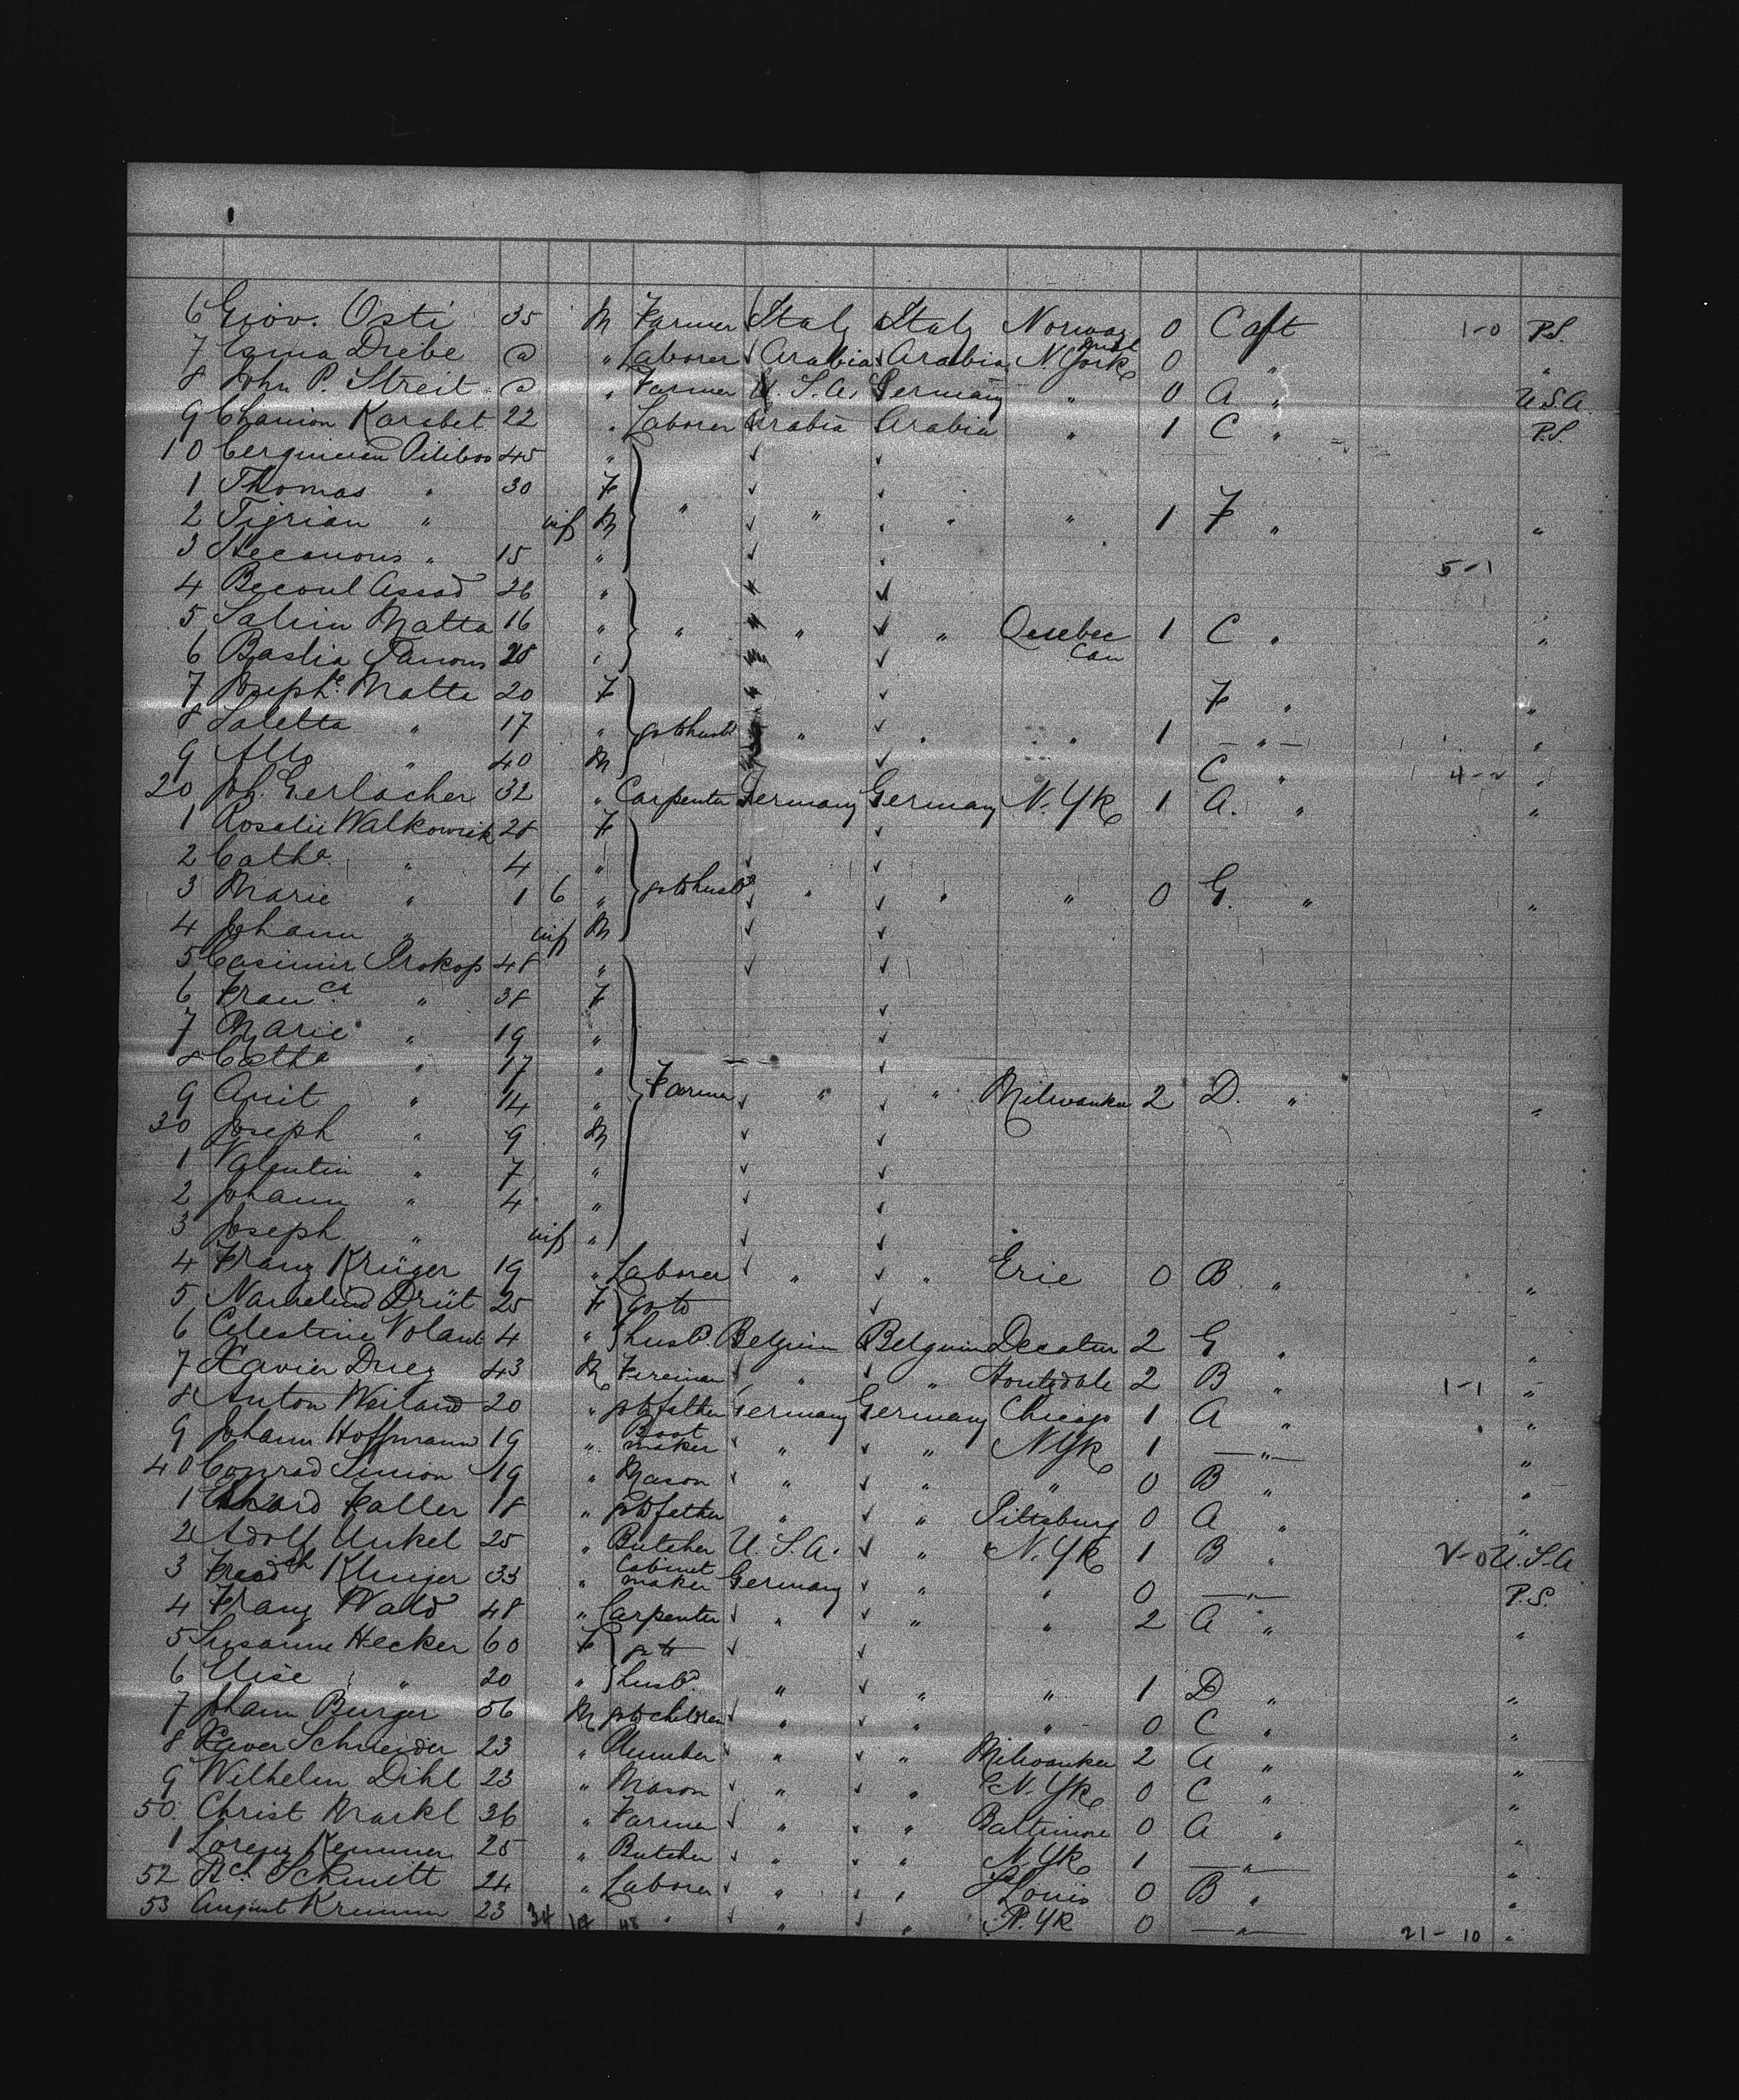 6 Giov. Osti 35 M Farmer Italy Italy Norway Mich 0 C aft 1-0 P.S.
7 Drebe @ " Laborer Arabia Arabia N. York 0 "
8 John P. Streit @ " Farmer U.S.A. Germany " 0 A " U.S.A.
9 Karabet 22 " Laborer Arabia Arabia " 1 C " P.S.
10 45 "
1 Thomas " 30 F
2 Tigrian " inf M " " " " 1 F " "
3 " 15 " 5-1
4 Assad 26 "
5 Salim Matta 16 " " " " Quebec Can 1 C " "
6 28 "
7 Josephe Matta 20 F F " "
8 Saletta " 17 " go to husbd " " " 1 — " — "
9 " 40 M C " 4-2 "
20 Joh. Gerlacher 32 " Carpenter Germany Germany N. Yk 1 A. " "
1 Rosalie Walkowiak 28 F
2 Catha " 4 "
3 Marie " 1 6 " go to husbd " " " 0 G. " "
4 Johann " inf M
5 Casimir Prokop 48 "
6 Franca " 38 F
7 Marie " 19 "
8 Catha " 17 "
9 " 14 " Farmer " " Milwaukee 2 D. " "
30 Joseph " 9 M
1 Valentin " 7 "
2 Johann " 4 "
3 Joseph " inf "
4 Franz Krüger 19 " Laborer " " Erie 0 B " "
5 25 F go to
6 Celestine Volant 4 " husbd. Belgium Belgium Decatur 2 G " "
7 Xavier Druez 43 M Fireman " " Houtzdale 2 B " 1-1 "
8 Anton Weiland 20 " go to father Germany Germany Chicago 1 A " "
9 Johann Hoffmann 19 " Boot maker " " N Yk 1 — " — "
40 Conrad Simon 19 " Mason " " " 0 B " "
1 Faller 18 " go to father " " Pittsburg 0 A " "
2 Adolf Unkel 25 " Butcher U.S.A. " N. Yk 1 B " V-0 U.S.A.
3 Fredch Klinger 33 " Cabinet maker Germany " " 0 — " — P.S.
4 Franz Wald 48 " Carpenter " " " 2 A " "
5 Susanne Hecker 60 F go to
6 Elise " 20 " husbd. " " " 1 D " "
7 Johann Burger 56 M go to children " " " 0 C " "
8 Xaver Schneider 23 " Plumber " " Milwaukee 2 A " "
9 Wilhelm Dihl 23 " Mason " " N. Yk 0 C " "
50. Christ Markl 36 " Farmer " " Baltimore 0 A " "
1 Lorenz Kemmer 25 " Butcher " " N. Yk 1 — " — "
52 Rch. Schmitt 24 " Laborer " " St Louis 0 B " "
53 August Krumm 23 34 14 48 " " " N. Yk 0 — " — 21-10 "